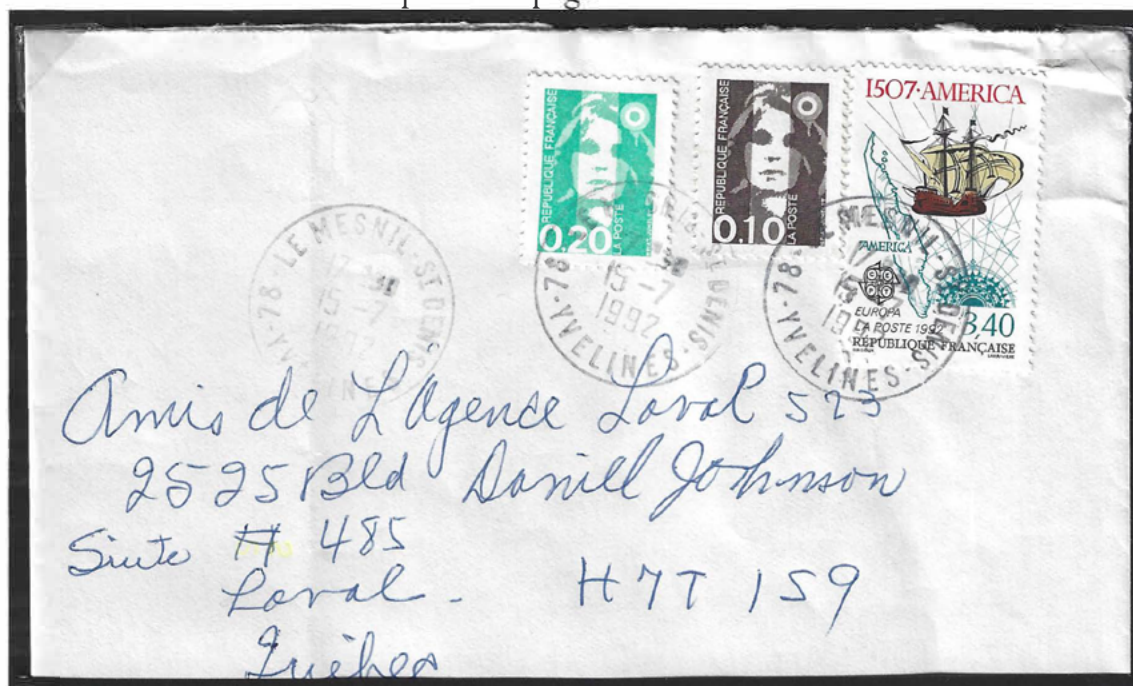 REPUBLIQUE FRANÇAISE
0,20
LA POSTE
REPUBLIQUE FRANÇAISE
0,10
LA POSTE
1507·AMERICA
AMERICA
EUROPA
LA POSTE 1992
3,40
RÉPUBLIQUE FRANÇAISE
78-LE MESNIL-ST DENIS
YVELINES
17
15-7
1992
78
YVELINES-ST DENIS
15-7
1992
78-LE MESNIL-ST DENIS
YVELINES
17
Amis de L'Agence Laval 523
2525 Bld Daniell Johnson
Suite # 485
Laval.
H7T 1S9
Québec